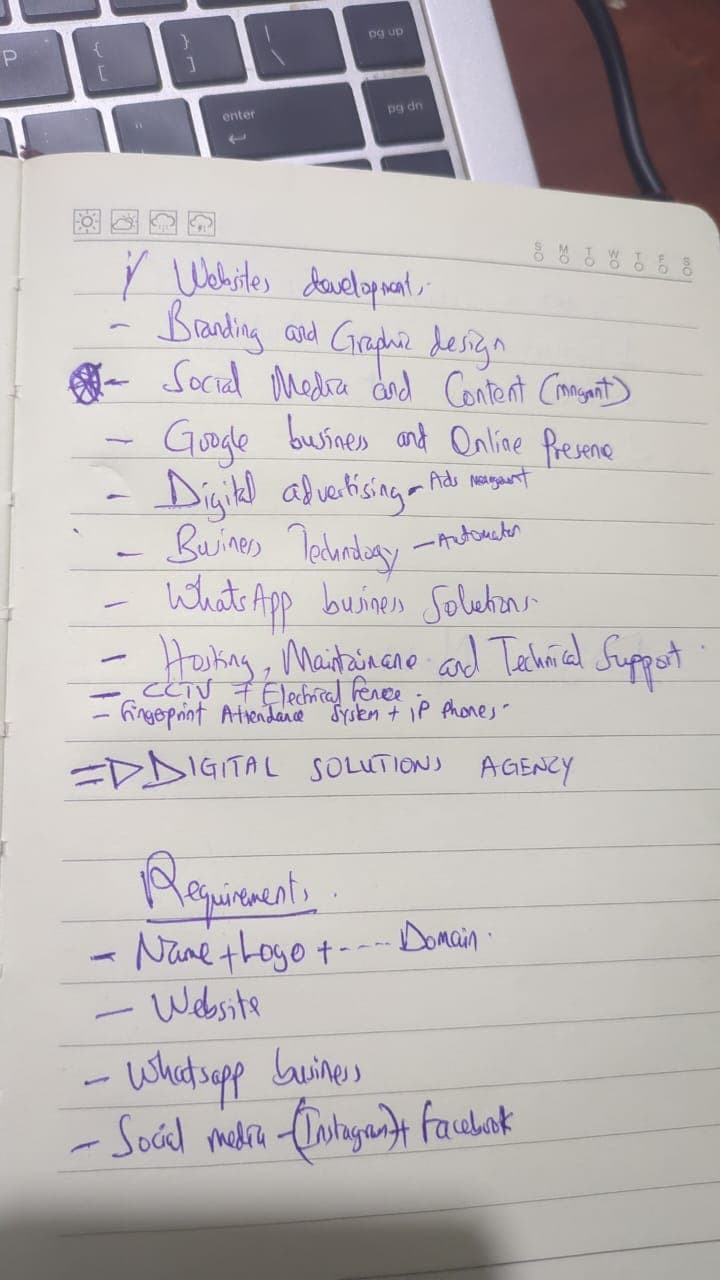 P
{
[
}
]
|
\
pg up
"
enter
pg dn
S M T W T F S
i/ Websites development.
- Branding and Graphic design
- Social Media and Content (mngmnt)
- Google business and Online Presene
- Digital advertising - Ads
- Business Technology -
- WhatsApp business Solutions
- Hosting, Maintainane and Technical Support
- CCTV + Electrical fence
- fingerprint Attendance System + iP Phones
=> DIGITAL SOLUTIONS AGENCY
Requirements.
- Name + Logo + ---- Domain.
- Website
- Whatsapp business
- Social media - (Instagram) + facebook